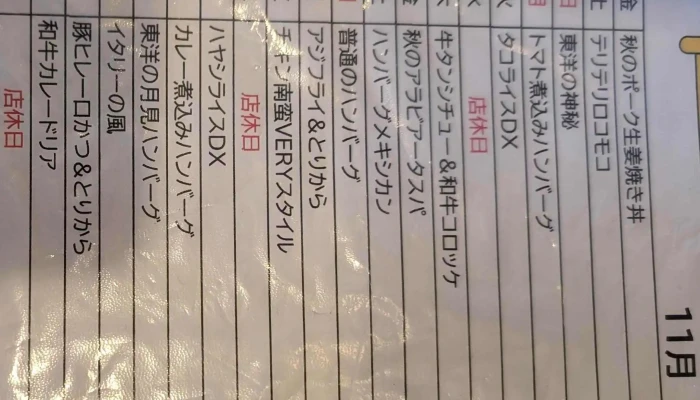 11月
金 秋のポーク生姜焼き丼
土 テリテリロコモコ
日 東洋の神秘
月 トマト煮込みハンバーグ
火 タコライスDX
店休日
牛タンシチュー＆和牛コロッケ
金 秋のアラビアータスパ
土 ハンバーグメキシカン
日 普通のハンバーグ
アジフライ＆とりから
チキン南蛮VERYスタイル
店休日
ハヤシライスDX
カレー煮込みハンバーグ
東洋の月見ハンバーグ
イタリーの風
豚ヒレ一口かつ＆とりから
和牛カレードリア
店休日